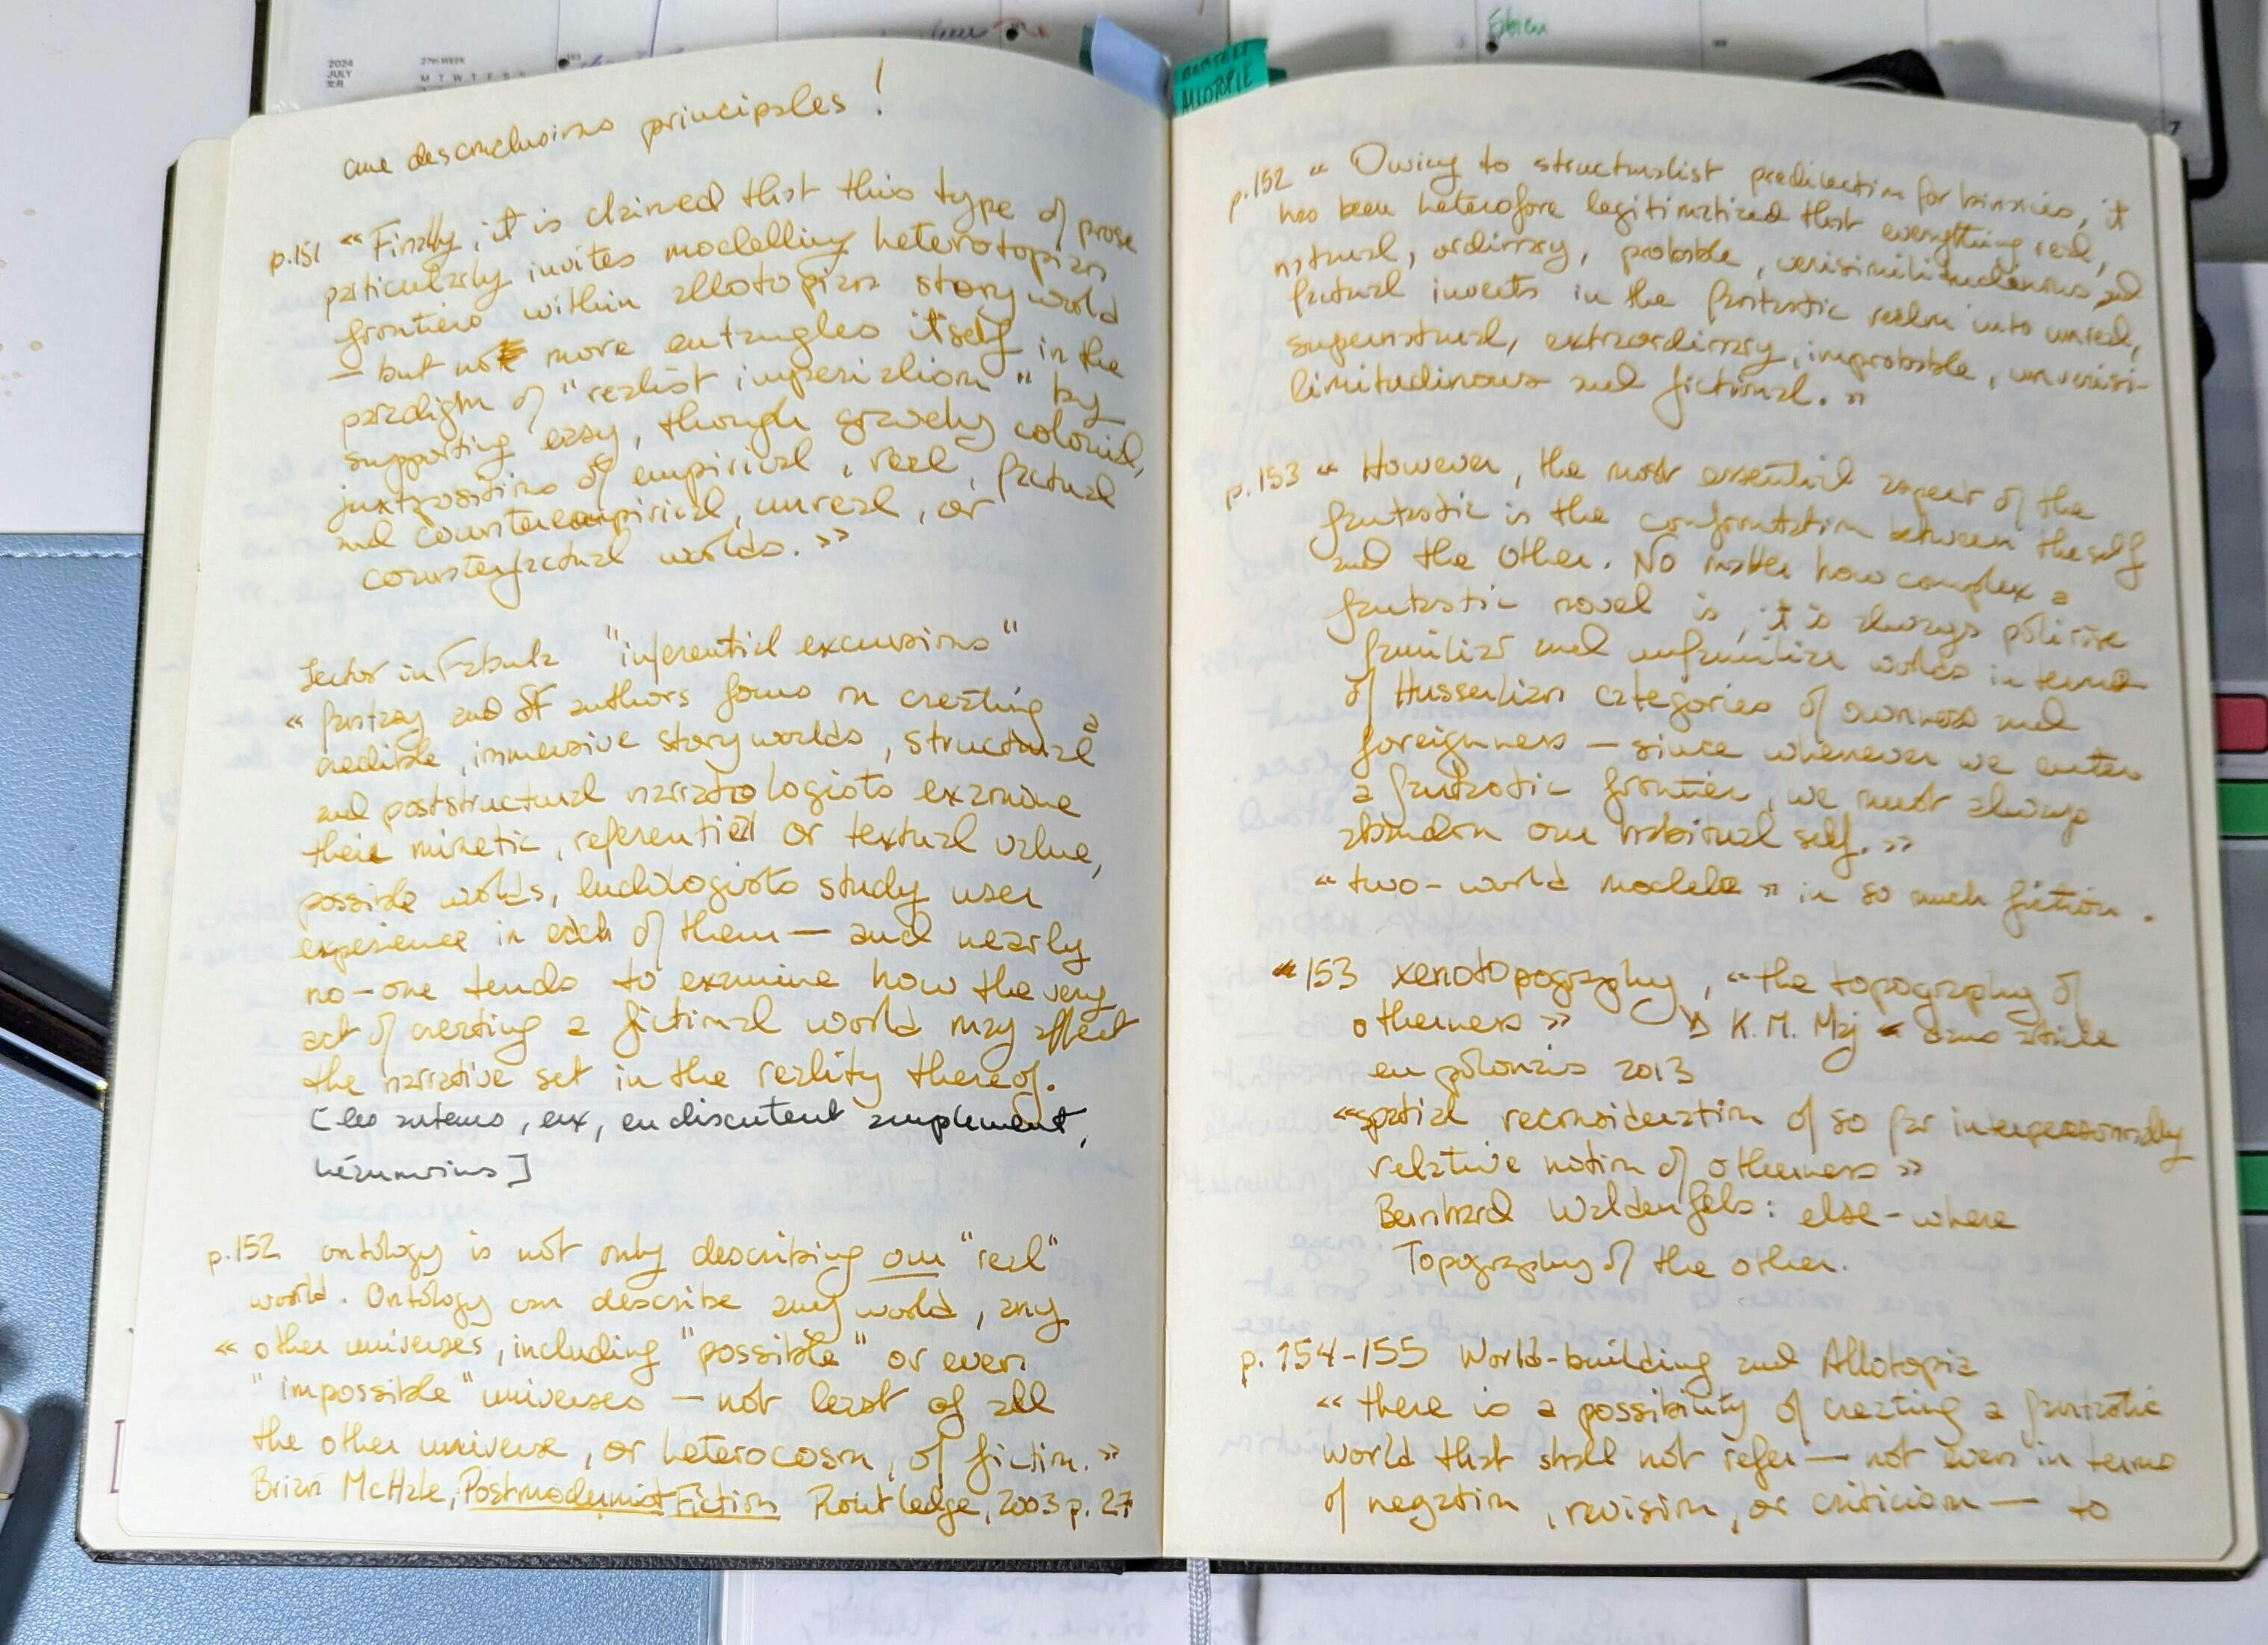 2024
JULY
27th WEEK
M T W T F S S
ALLOTOPIE
7
une des conclusions principales !
p.151 « Finally, it is claimed that this type of prose
particularly invites modelling heterotopian
frontiers within allotopian storyworld
— but not more entangles itself in the
paradigm of "realist imperialism" by
supporting easy, though gravely colonial,
juxtapositions of empirical, real, factual
and counterempirical, unreal, or
counterfactual worlds. »
Lector in Fabula "inferential excursions"
« fantasy and SF authors focus on creating a
credible, immersive storyworlds, structural
and poststructural narratologists examine
their mimetic, referential or textual value,
possible worlds, ludologists study user
experience in each of them — and nearly
no-one tends to examine how the very
act of creating a fictional world may affect
the narrative set in the reality thereof.
[les auteurs, eux, en discutent amplement,
néanmoins]
p.152 ontology is not only describing our "real"
world. Ontology can describe any world, any
« other universes, including "possible" or even
"impossible" universes — not least of all
the other universe, or heterocosm, of fiction. »
Brian McHale, Postmodernist Fiction Routledge, 2003 p. 27
p.152 « Owing to structuralist predilection for binaries, it
has been heretofore legitimatized that everything real,
natural, ordinary, probable, verisimilitudinous, and
factual inverts in the fantastic realm into unreal,
supernatural, extraordinary, improbable, unverisi-
limitudinous and fictional. »
p.153 « However, the most essential aspect of the
fantastic is the confrontation between the self
and the other. No matter how complex a
fantastic novel is, it is always polarise
familiar and unfamiliar worlds in terms
of Husserlian categories of ownness and
foreignness — since whenever we enter
a fantastic frontier, we must always
abandon our habitual self. »
« two-world models » in so much fiction.
153 xenotopography, « the topography of
otherness » K.M. Maj dans article
en polonais 2013
« spatial reconsideration of so far interpersonally
relative notion of otherness »
Bernhard Waldenfels : else-where
Topography of the other.
p. 154-155 World-building and Allotopia
« there is a possibility of creating a fantastic
world that shall not refer — not even in terms
of negation, revision, or criticism — to